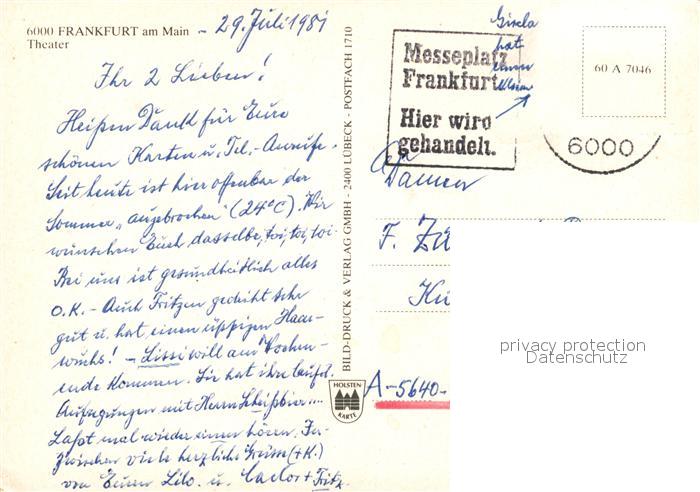 6000 FRANKFURT am Main
Theater
- 29. Juli 1981
Ihr 2 Lieben!
Heißen Dank für Eure
schönen Karten u. Tel.-Anrufe.
Seit heute ist hier offenbar der
Sommer „ausgebrochen" (24°C). Wir
wünschen Euch dasselbe, toi, toi, toi
Bei uns ist gesundheitlich alles
O.K. - Auch Fritzen gedeiht sehr
gut u. hat einen üppigen Haar-
wuchs! - Lissi will am Wochen-
ende kommen. Sie hat ihre laufd.
Aufregungen mit Herrn
Laßt mal wieder einen hören. In-
zwischen viele herzliche Grüsse (+K.)
von Euren Lilo. u. Carlo + Fritz.
BILD-DRUCK & VERLAG GMBH - 2400 LÜBECK - POSTFACH 1710
HOLSTEN
KARTE
Gisela
hat
einen
Messeplatz
Frankfurt
Hier wird
gehandelt.
60 A 7046
6000
F.
A-5640-
privacy protection
Datenschutz